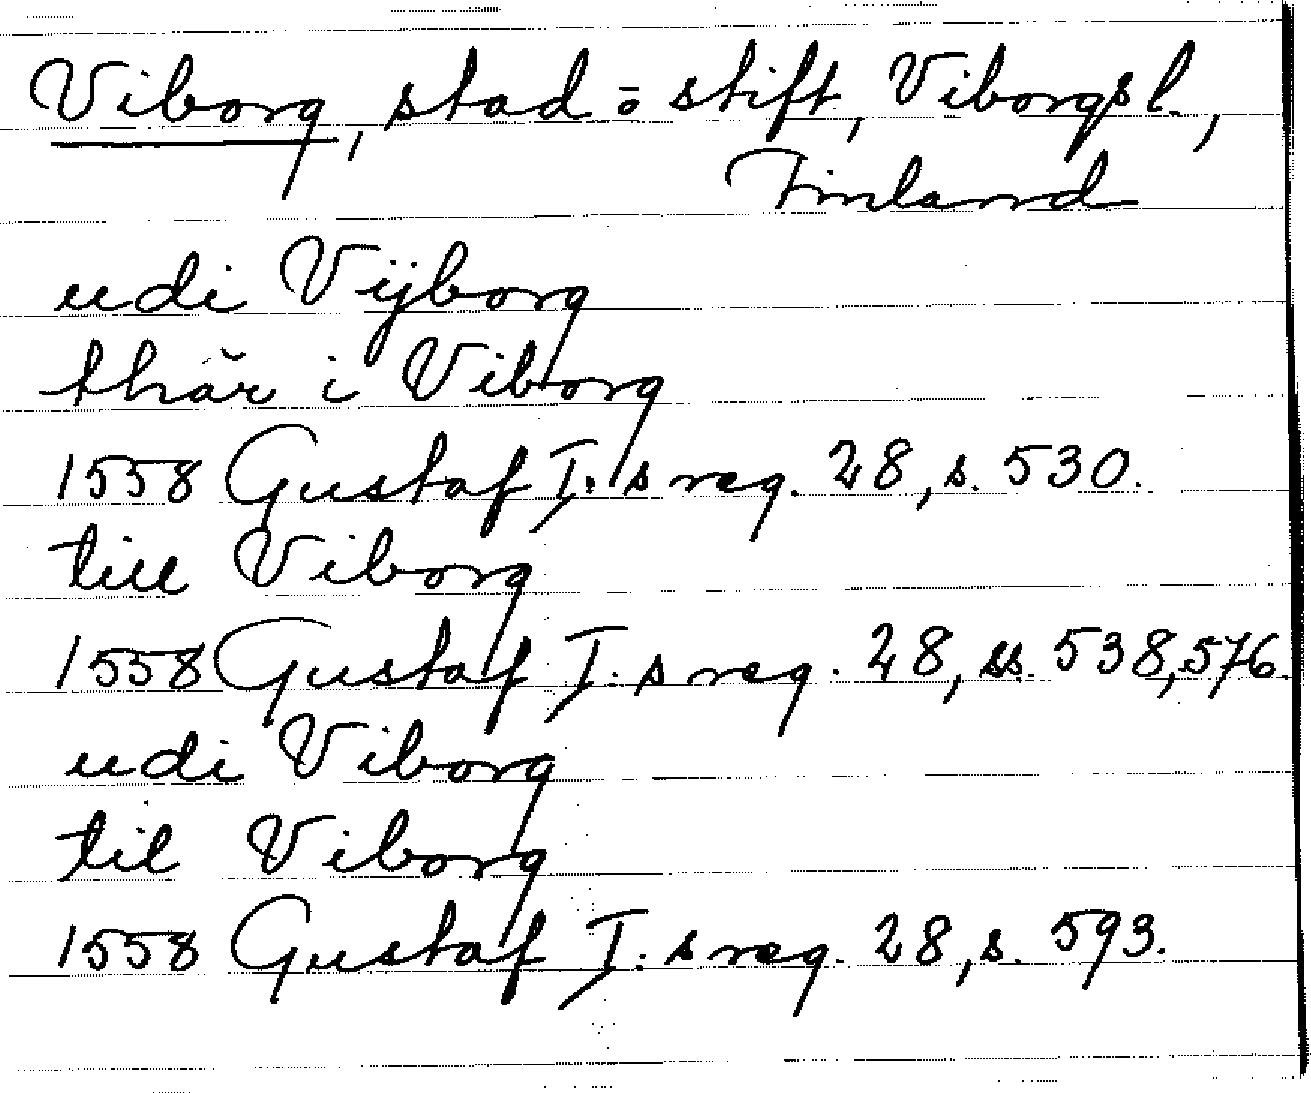 Viborg, stad o stift, Viborgs l.,
Finland
udi Vijborg
thär i Viborg
1558 Gustaf I:s reg. 28, s. 530.
till Viborg
1558 Gustaf I:s reg. 28, ss. 538, 576.
udi Viborg
til Viborg
1558 Gustaf I:s reg. 28, s. 593.